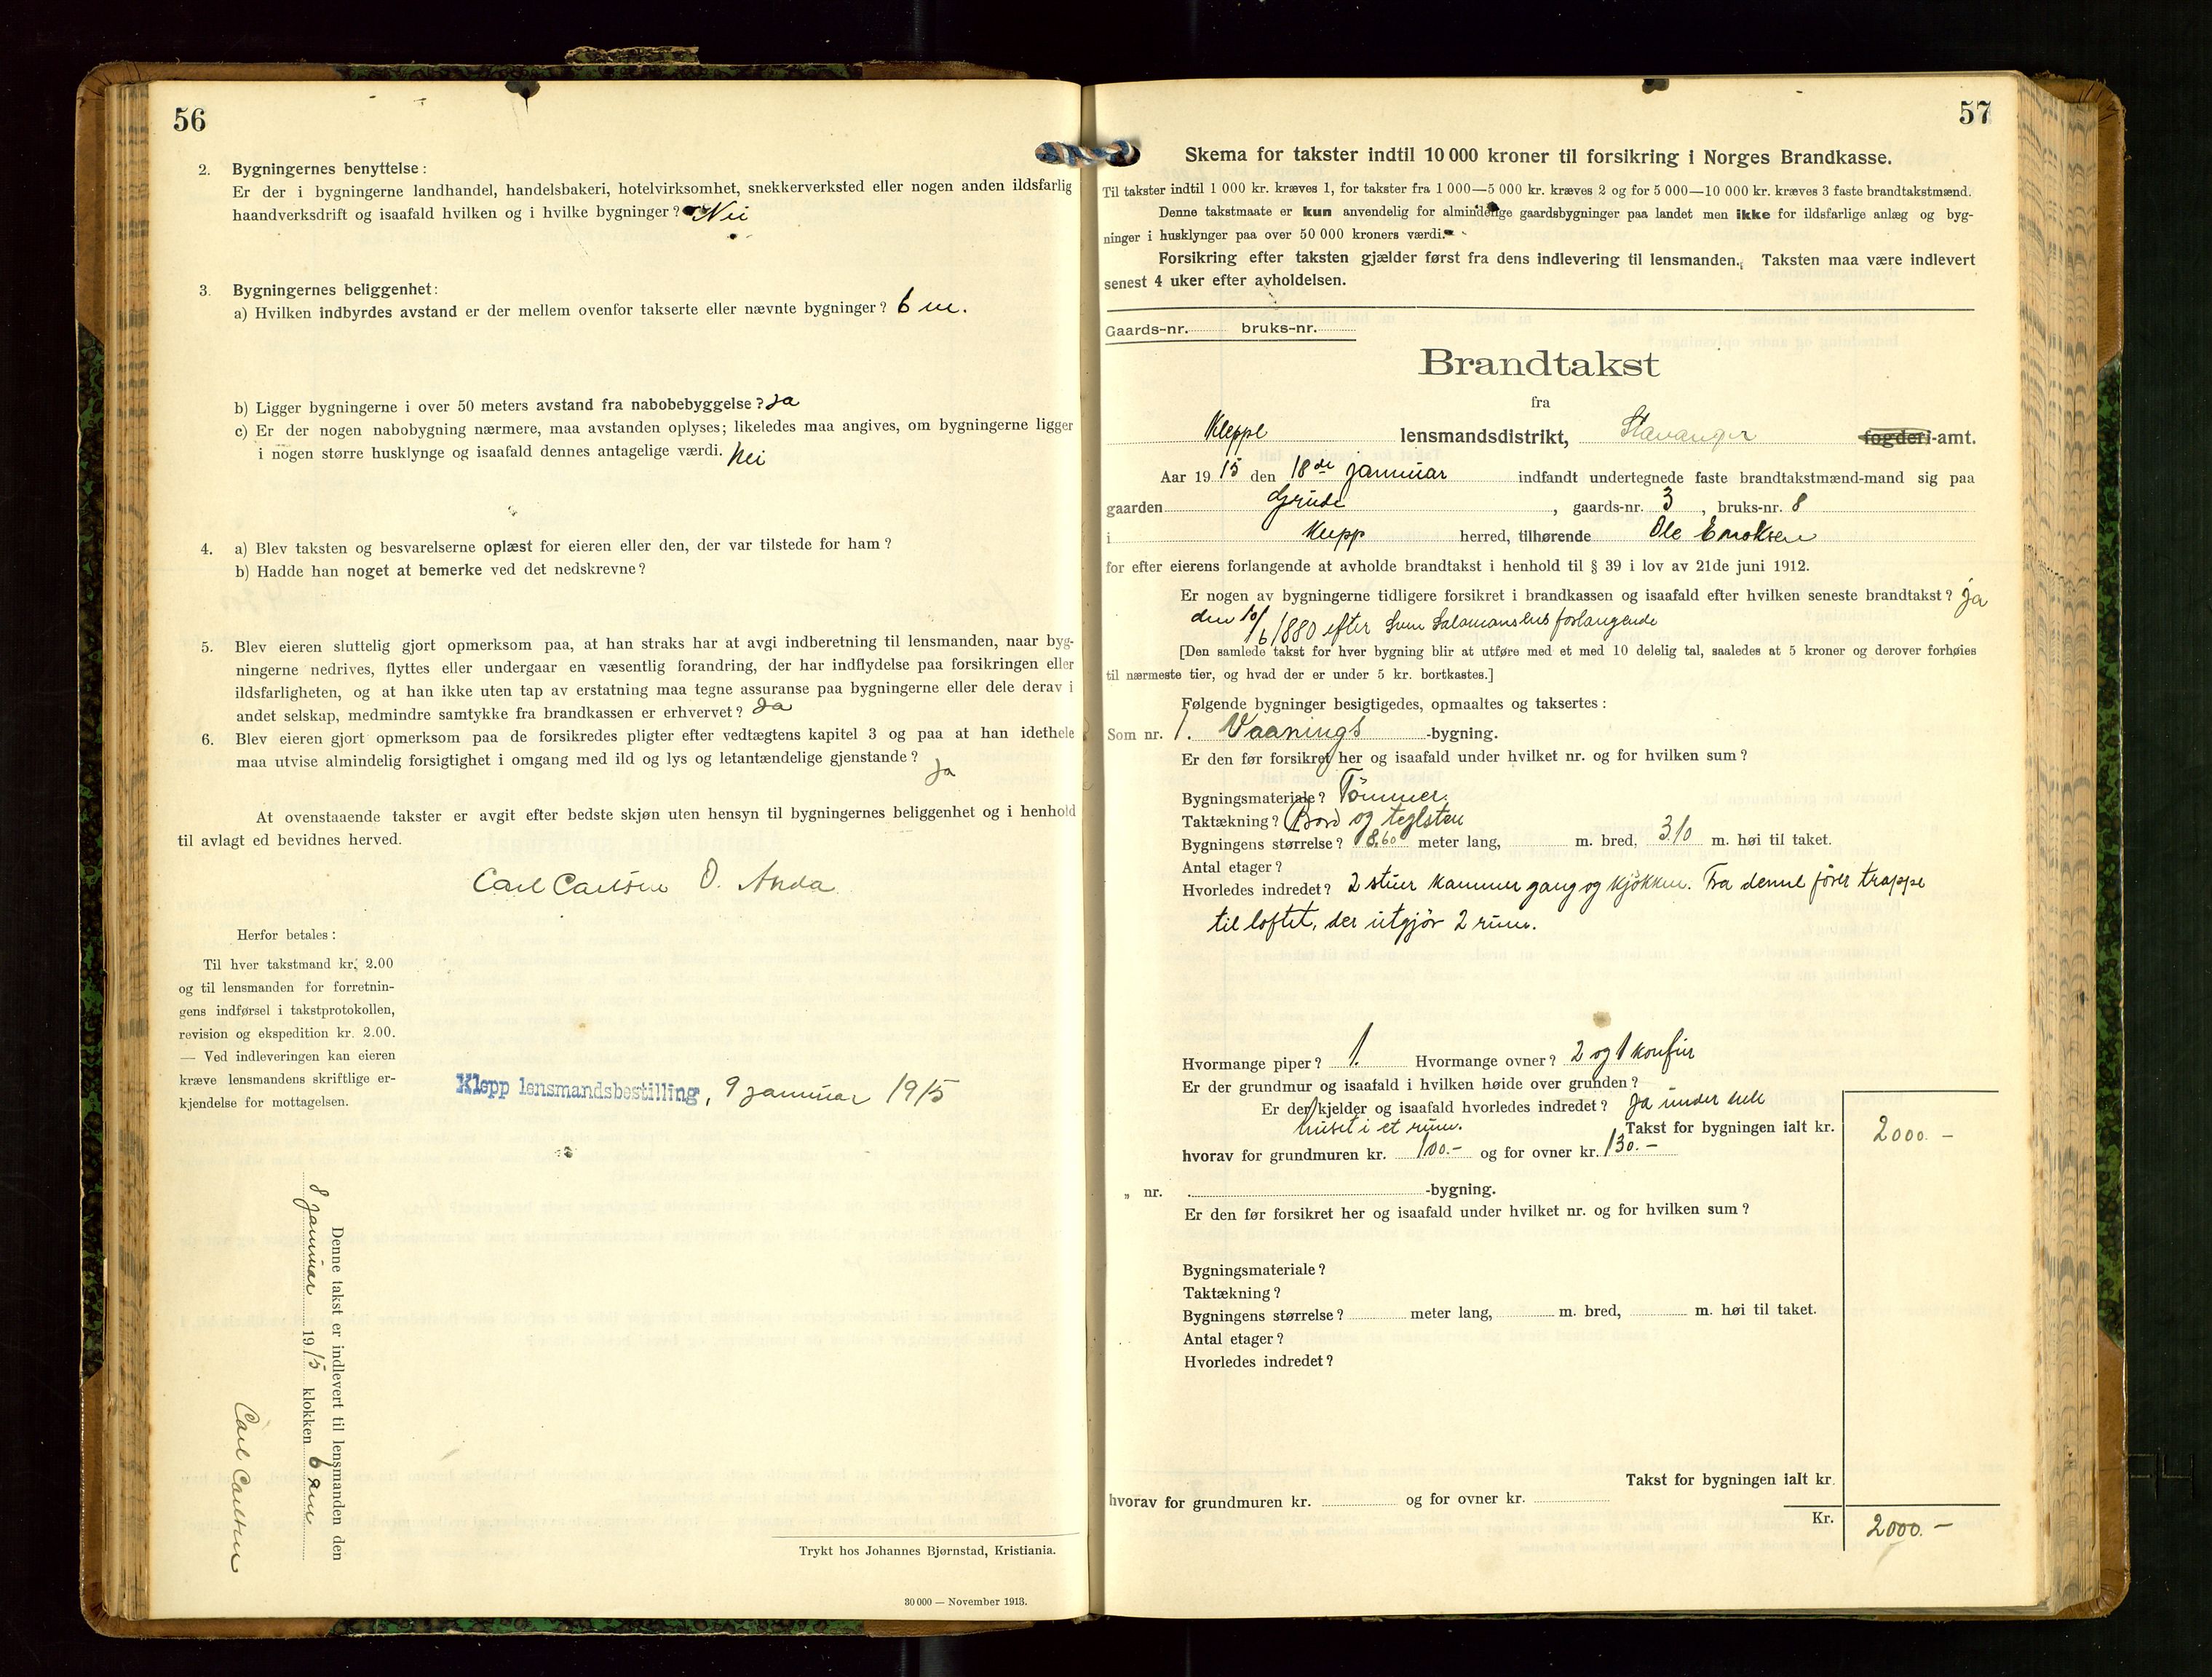 56
2. Bygningernes benyttelse:
Er der i bygningerne landhandel, handelsbakeri, hotelvirksomhet, snekkerverksted eller nogen anden ildsfarlig
haandverksdrift og isaafald hvilken og i hvilke bygninger? Nei
3. Bygningernes beliggenhet:
a) Hvilken indbyrdes avstand er der mellem ovenfor takserte eller nævnte bygninger? 6 m.
b) Ligger bygningerne i over 50 meters avstand fra nabobebyggelse? Ja
c) Er der nogen nabobygning nærmere, maa avstanden oplyses; likeledes maa angives, om bygningerne ligger
i nogen større husklynge og isaafald dennes antagelige værdi. Nei
4. a) Blev taksten og besvarelserne oplæst for eieren eller den, der var tilstede for ham?
b) Hadde han noget at bemerke ved det nedskrevne?
5. Blev eieren sluttelig gjort opmerksom paa, at han straks har at avgi indberetning til lensmanden, naar byg-
ningerne nedrives, flyttes eller undergaar en væsentlig forandring, der har indflydelse paa forsikringen eller
ildsfarligheten, og at han ikke uten tap av erstatning maa tegne assuranse paa bygningerne eller dele derav i
andet selskap, medmindre samtykke fra brandkassen er erhvervet? Ja
6. Blev eieren gjort opmerksom paa de forsikredes pligter efter vedtægtens kapitel 3 og paa at han idethele
maa utvise almindelig forsigtighet i omgang med ild og lys og letantændelige gjenstande? Ja
At ovenstaaende takster er avgit efter bedste skjøn uten hensyn til bygningernes beliggenhet og i henhold
til avlagt ed bevidnes herved.
Carl Carlsen O. Anda
Herfor betales:
Til hver takstmand kr. 2.00
og til lensmanden for forretnin-
gens indførsel i takstprotokollen,
revision og ekspedition kr. 2.00.
— Ved indleveringen kan eieren
kræve lensmandens skriftlige er-
kjendelse for mottagelsen.
Klepp lensmandsbestilling, 9 januar 1915
Denne takst er indlevert til lensmanden den
8 januar 1915 klokken 6 em
Carl Carlsen
Trykt hos Johannes Bjørnstad, Kristiania.
30 000 — November 1913.
57
Skema for takster indtil 10 000 kroner til forsikring i Norges Brandkasse.
Til takster indtil 1 000 kr. kræves 1, for takster fra 1 000—5 000 kr. kræves 2 og for 5 000—10 000 kr. kræves 3 faste brandtakstmænd.
Denne takstmaate er kun anvendelig for almindelige gaardsbygninger paa landet men ikke for ildsfarlige anlæg og byg-
ninger i husklynger paa over 50 000 kroners værdi.
Forsikring efter taksten gjælder først fra dens indlevering til lensmanden. Taksten maa være indlevert
senest 4 uker efter avholdelsen.
Gaards-nr. bruks-nr.
Brandtakst
fra
Kleppe lensmandsdistrikt, Stavanger fogderi-amt.
Aar 1915 den 18de januar indfandt undertegnede faste brandtakstmænd-mand sig paa
gaarden Grude, gaards-nr. 3, bruks-nr. 8
i Klepp herred, tilhørende Ole
for efter eierens forlangende at avholde brandtakst i henhold til § 39 i lov av 21de juni 1912.
Er nogen av bygningerne tidligere forsikret i brandkassen og isaafald efter hvilken seneste brandtakst? Ja
den 10/6 1880 efter Sven Salamonsens forlangende
[Den samlede takst for hver bygning blir at utføre med et med 10 delelig tal, saaledes at 5 kroner og derover forhøies
til nærmeste tier, og hvad der er under 5 kr. bortkastes.]
Følgende bygninger besigtigedes, opmaaltes og taksertes:
Som nr. 1. Vaanings-bygning.
Er den før forsikret her og isaafald under hvilket nr. og for hvilken sum?
Bygningsmateriale? Tömmer.
Taktækning? Bord og teglsten
Bygningens størrelse? 8,60 meter lang, m. bred, 3.10 m. høi til taket.
Antal etager?
Hvorledes indredet? 2 stuer kammer gang og kjøkken. Fra denne fører trappe
til loftet, der utgjør 2 rum.
Hvormange piper? 1. Hvormange ovner? 2 og 1 komfur
Er der grundmur og isaafald i hvilken høide over grunden?
Er der kjelder og isaafald hvorledes indredet? Ja under hele
huset i et rum. Takst for bygningen ialt kr. 2000.–
hvorav for grundmuren kr. 100.– og for ovner kr. 130.–
„ nr. -bygning.
Er den før forsikret her og isaafald under hvilket nr. og for hvilken sum?
Bygningsmateriale?
Taktækning?
Bygningens størrelse? meter lang, m. bred, m. høi til taket.
Antal etager?
Hvorledes indredet?
Takst for bygningen ialt kr.
hvorav for grundmuren kr. og for ovner kr.
Kr. 2000.–